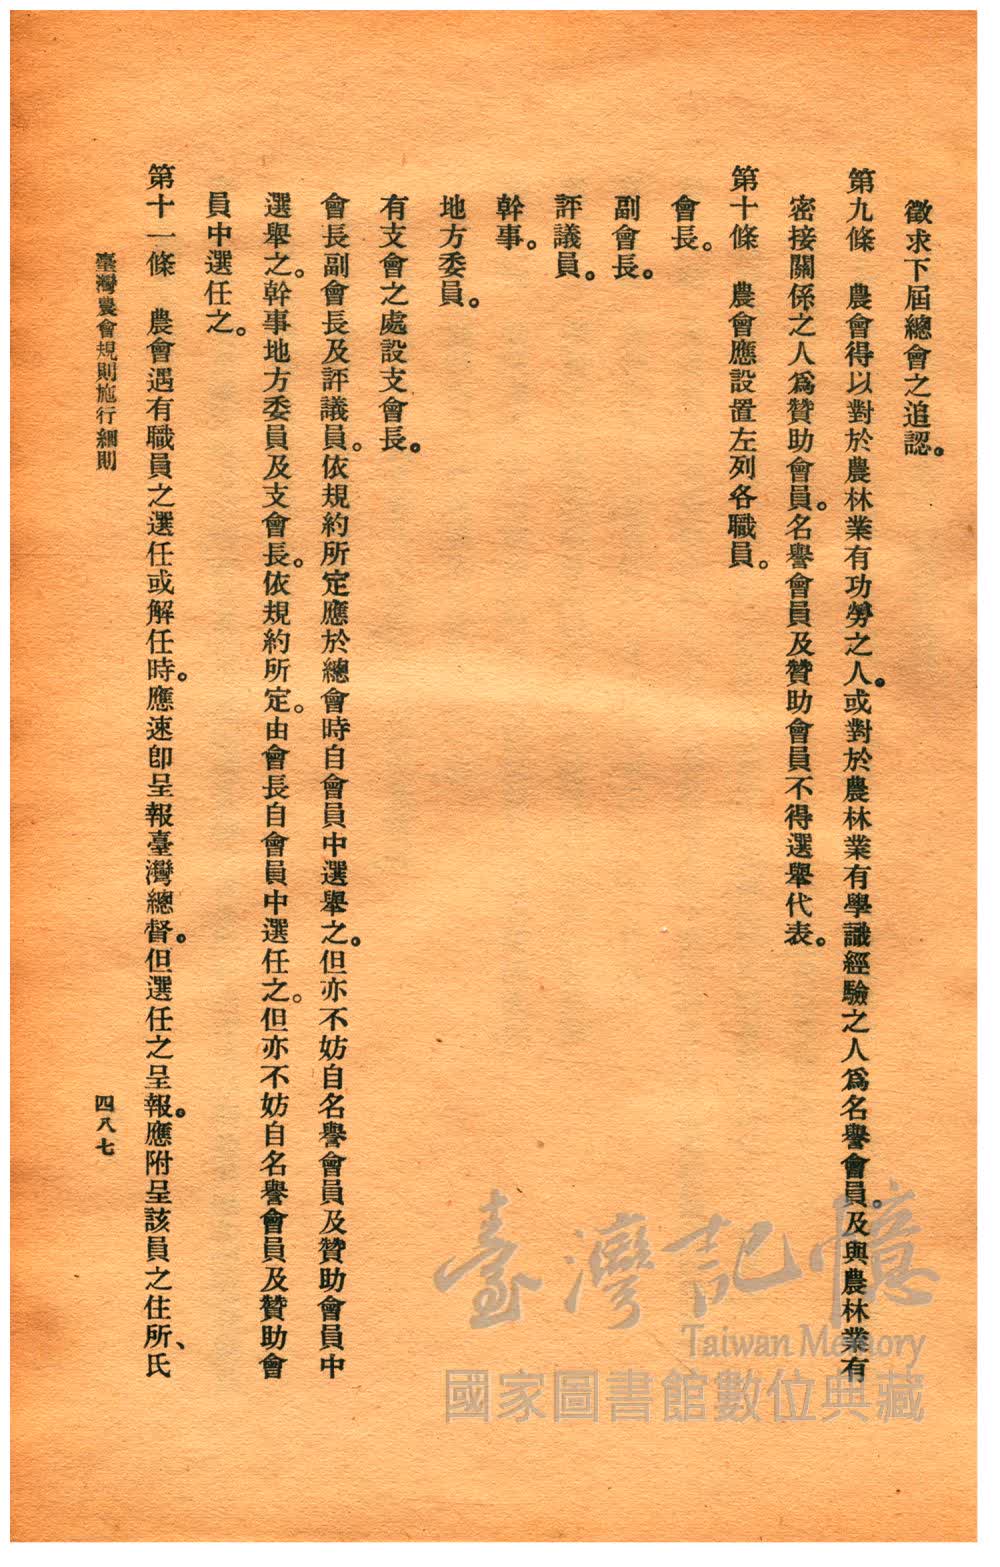 徵求下屆總會之追認。
第九條　農會得以對於農林業有功勞之人。或對於農林業有學識經驗之人爲名譽會員。及與農林業有
密接關係之人爲贊助會員。名譽會員及贊助會員不得選舉代表。
第十條　農會應設置左列各職員。
會長。
副會長。
評議員。
幹事。
地方委員。
有支會之處設支會長。
會長副會長及評議員。依規約所定應於總會時自會員中選舉之。但亦不妨自名譽會員及贊助會員中
選舉之。幹事地方委員及支會長。依規約所定。由會長自會員中選任之。但亦不妨自名譽會員及贊助會
員中選任之。
第十一條　農會遇有職員之選任或解任時。應速卽呈報臺灣總督。但選任之呈報。應附呈該員之住所、氏
臺灣農會規則施行細則
四八七
臺灣記憶
Taiwan Memory
國家圖書館數位典藏